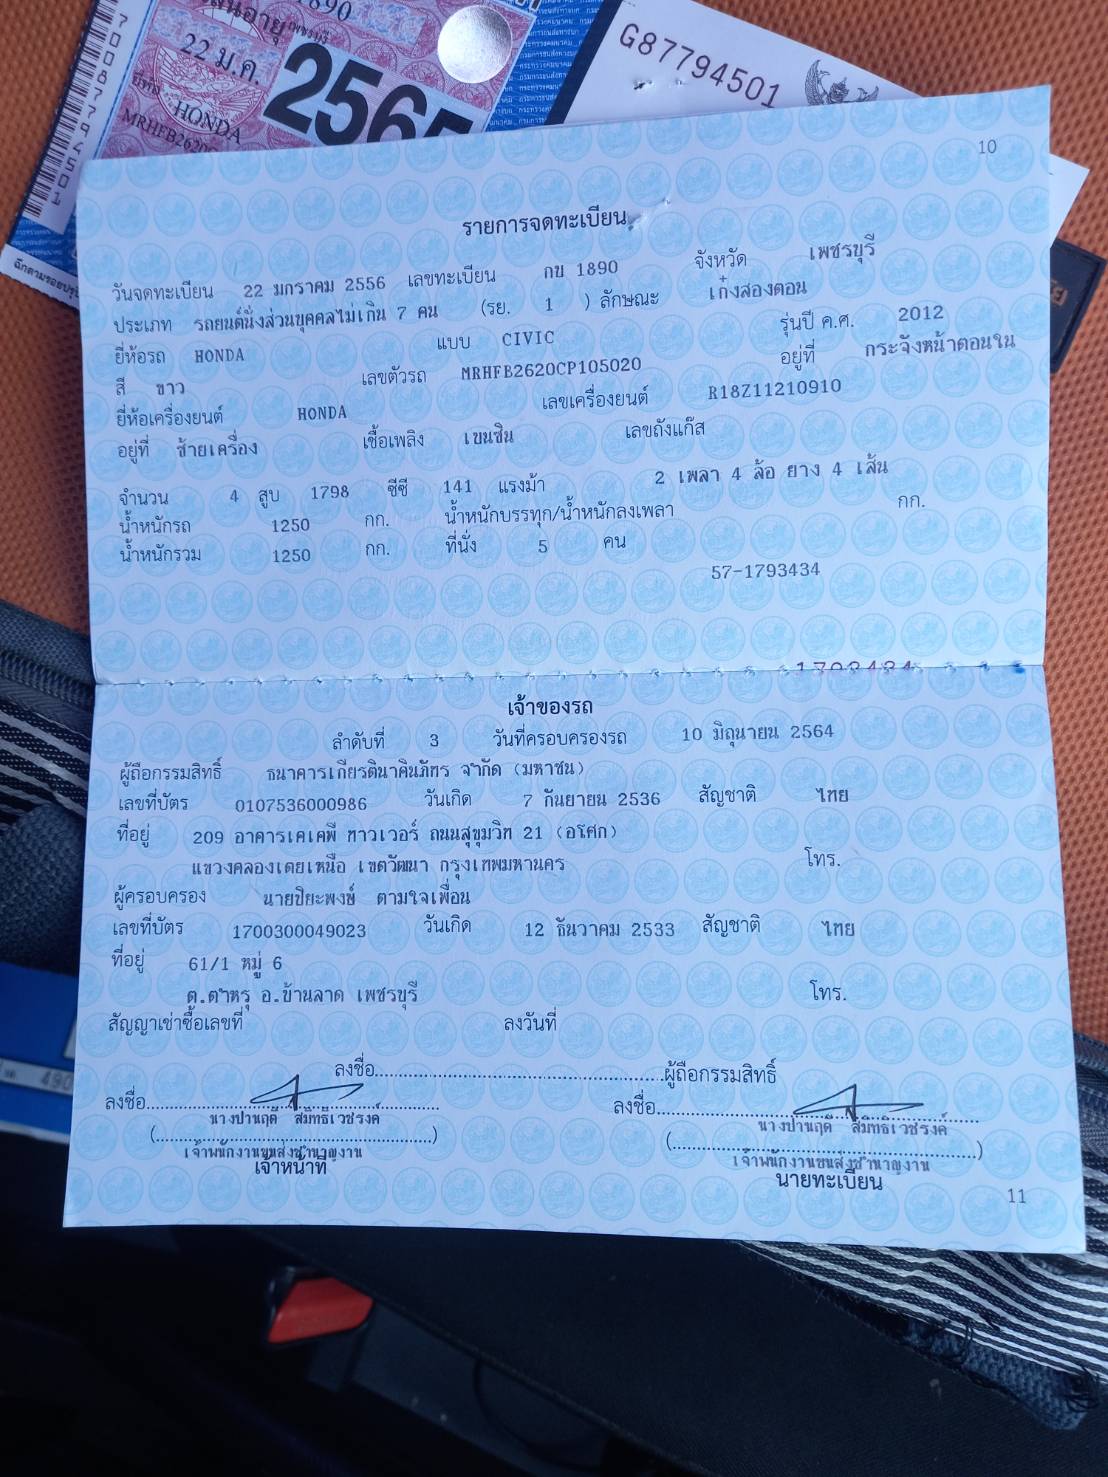 1890
22 ม.ค. 2565
HONDA
MRHFB2620
G87794501
10
รายการจดทะเบียน
วันจดทะเบียน 22 มกราคม 2556 เลขทะเบียน กข 1890 จังหวัด เพชรบุรี
ประเภท รถยนต์นั่งส่วนบุคคลไม่เกิน 7 คน (รย. 1 ) ลักษณะ เก๋งสองตอน
ยี่ห้อรถ HONDA แบบ CIVIC รุ่นปี ค.ศ. 2012
สี ขาว เลขตัวรถ MRHFB2620CP105020 อยู่ที่ กระจังหน้าตอนใน
ยี่ห้อเครื่องยนต์ HONDA เลขเครื่องยนต์ R18Z11210910
อยู่ที่ ซ้ายเครื่อง เชื้อเพลิง เบนซิน เลขถังแก๊ส
จำนวน 4 สูบ 1798 ซีซี 141 แรงม้า 2 เพลา 4 ล้อ ยาง 4 เส้น
น้ำหนักรถ 1250 กก. น้ำหนักบรรทุก/น้ำหนักลงเพลา กก.
น้ำหนักรวม 1250 กก. ที่นั่ง 5 คน
57-1793434
1793434
เจ้าของรถ
ลำดับที่ 3 วันที่ครอบครองรถ 10 มิถุนายน 2564
ผู้ถือกรรมสิทธิ์ ธนาคารเกียรตินาคินภัทร จำกัด (มหาชน)
เลขที่บัตร 0107536000986 วันเกิด 7 กันยายน 2536 สัญชาติ ไทย
ที่อยู่ 209 อาคารเคเคพี ทาวเวอร์ ถนนสุขุมวิท 21 (อโศก)
แขวงคลองเตยเหนือ เขตวัฒนา กรุงเทพมหานคร โทร.
ผู้ครอบครอง นายปิยะพงษ์ ตามใจเพื่อน
เลขที่บัตร 1700300049023 วันเกิด 12 ธันวาคม 2533 สัญชาติ ไทย
ที่อยู่ 61/1 หมู่ 6
ต.ตำหรุ อ.บ้านลาด เพชรบุรี โทร.
สัญญาเช่าซื้อเลขที่ ลงวันที่
ลงชื่อ ผู้ถือกรรมสิทธิ์
ลงชื่อ ลงชื่อ
นางปานฤดี สมิทธิเวชรงค์ นางปานฤดี สมิทธิเวชรงค์
เจ้าพนักงานขนส่งชำนาญงาน เจ้าพนักงานขนส่งชำนาญงาน
เจ้าหน้าที่ นายทะเบียน
11